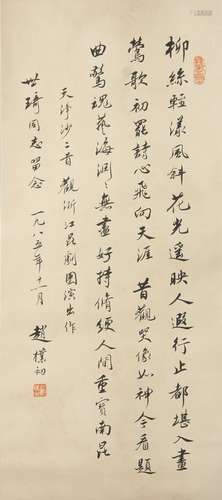 柳絲輕漾風斜花光遙映人遐行止都堪入畫
鶯歌初罷詩心飛向天涯 昔觀哭像如神今看題
曲驚魂藝海洄洄無盡好持脩綆人間重寶南崑
天淨沙二首 觀浙江昆劇團演出作
世琦同志留念 一九八五年十二月 趙樸初